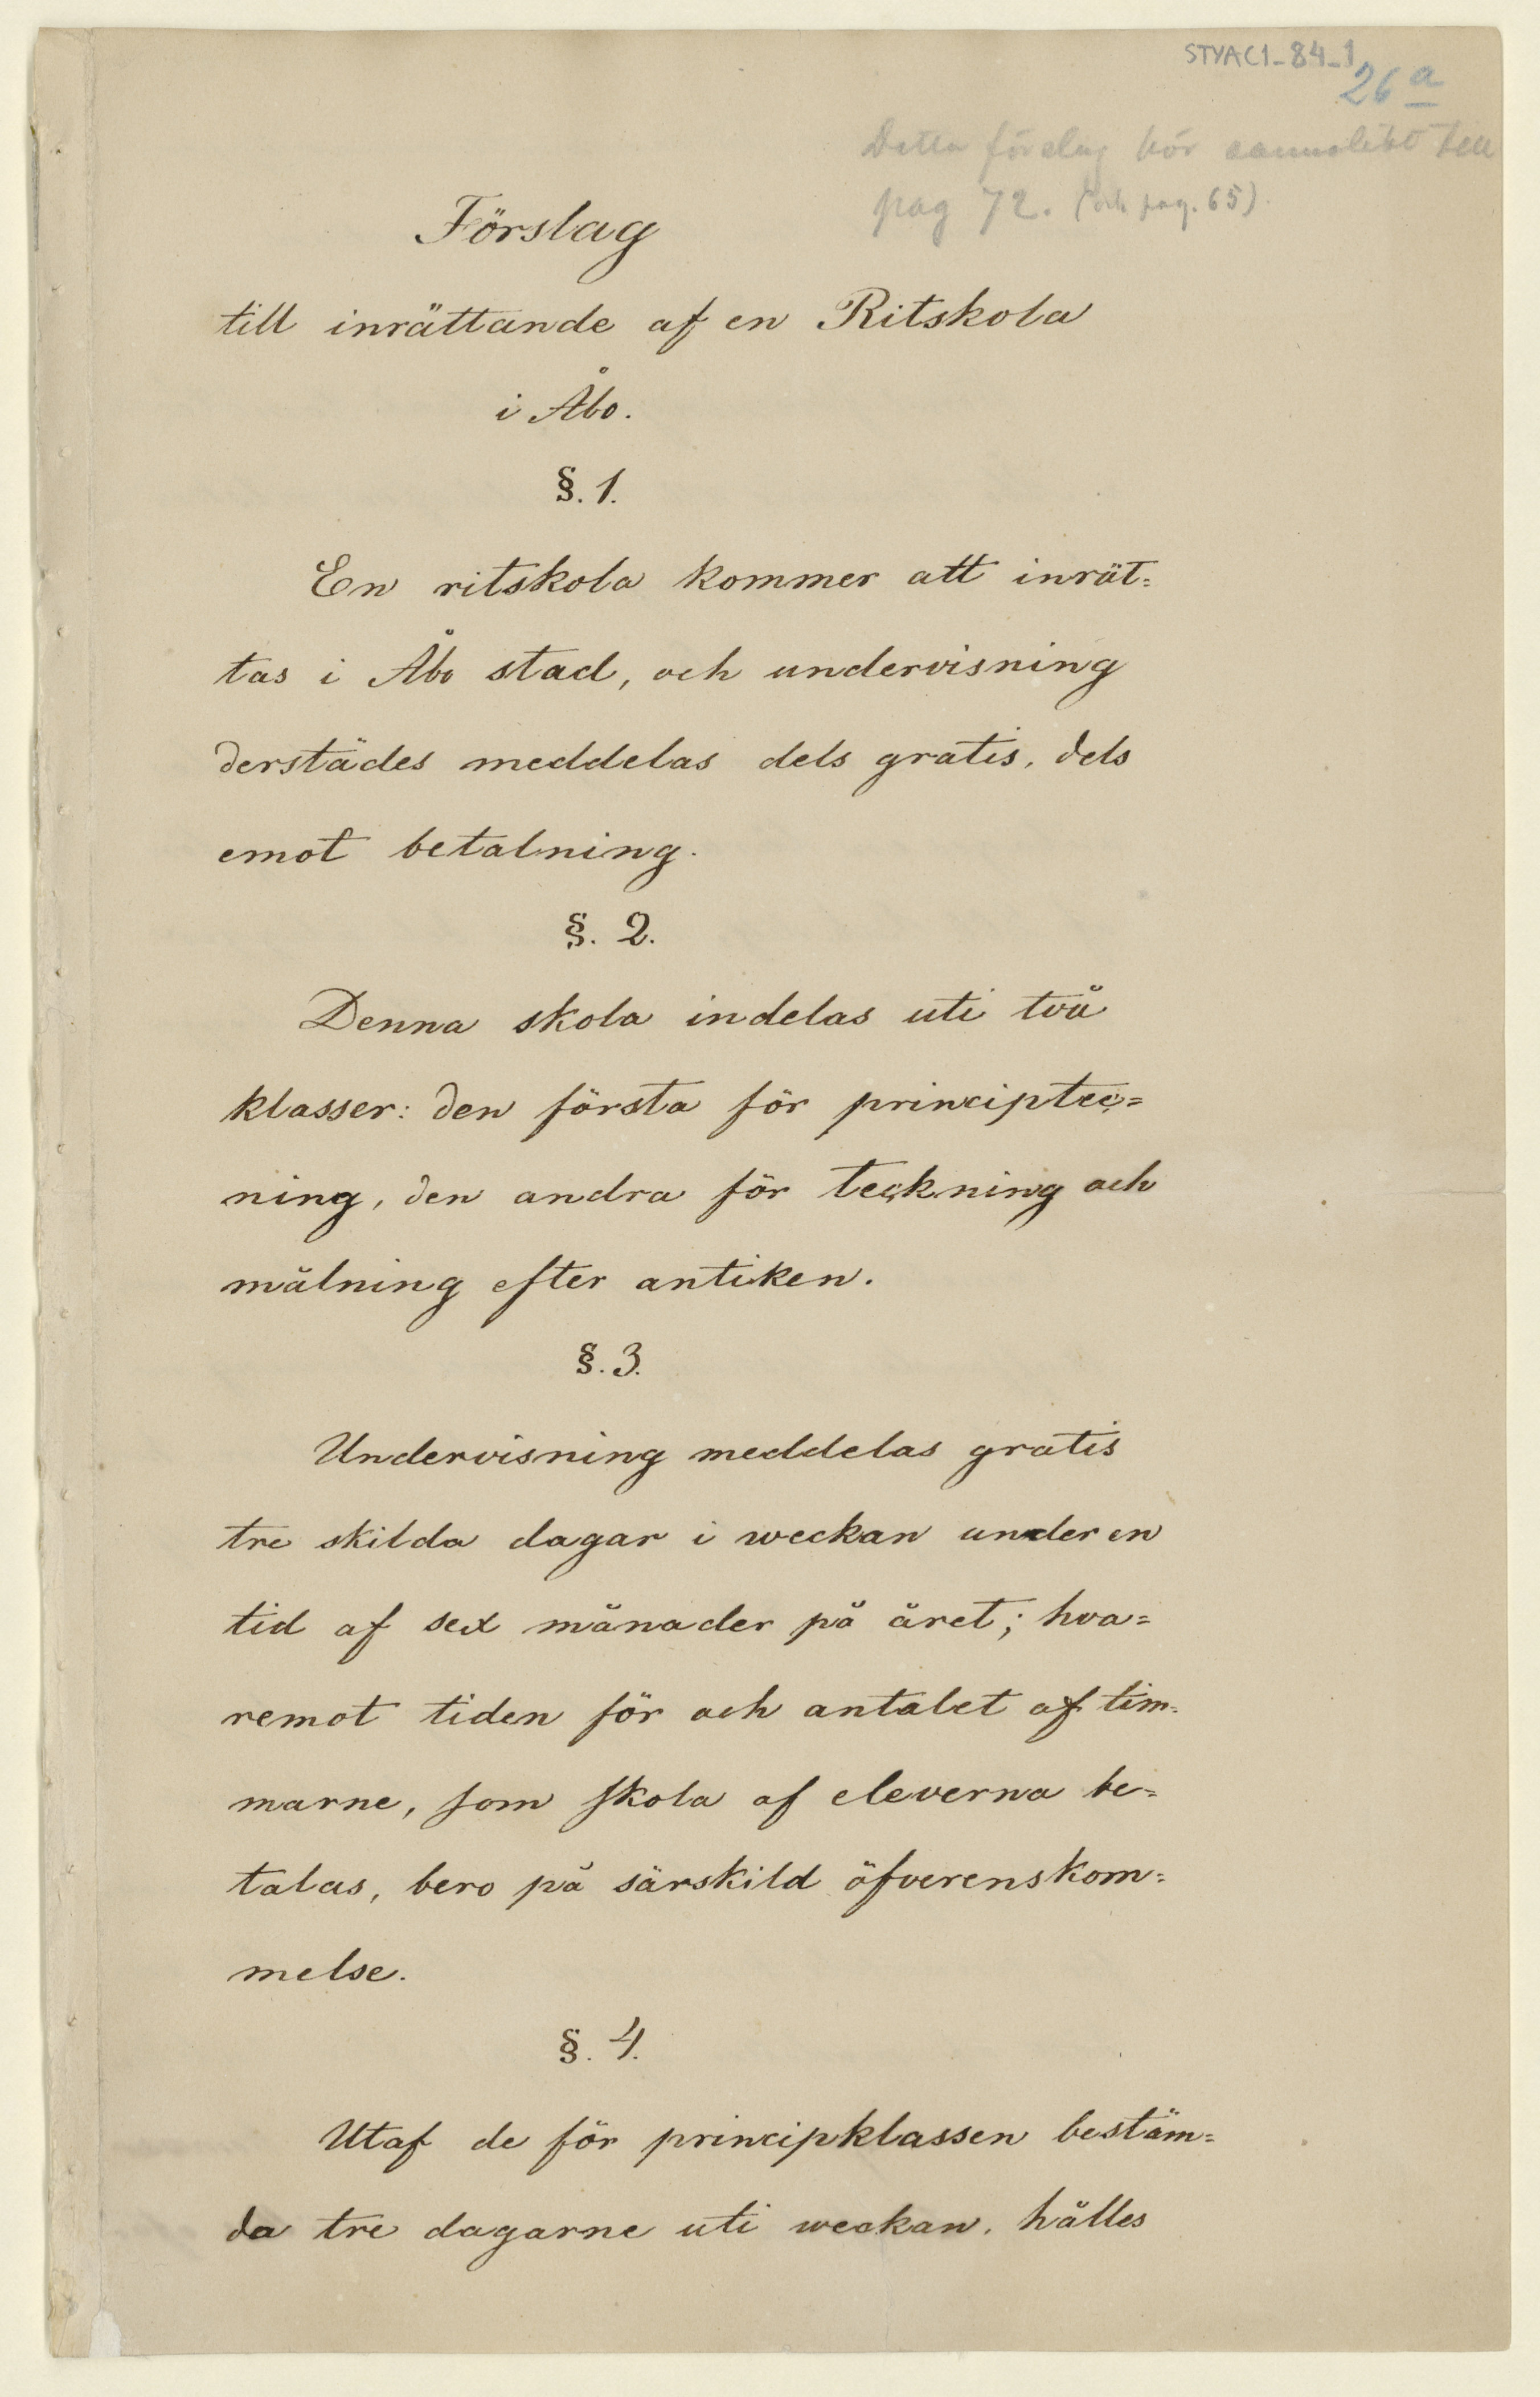 STYAC1-84-1
26 a
Detta förslag hör sannolikt till
pag 72. (och pag. 65).
Förslag
till inrättande af en Ritskola
i Åbo.
§. 1.
En ritskola kommer att inrät=
tas i Åbo stad, och undervisning
derstädes meddelas dels gratis, dels
emot betalning.
§. 2.
Denna skola indelas uti två
klasser: den första för principtec=
ning, den andra för teckning och
målning efter antiken.
§. 3.
Undervisning meddelas gratis
tre skilda dagar i weckan under en
tid af sex månader på året; hva=
remot tiden för och antalet af tim=
marne, som skola af eleverna be=
talas, bero på särskild öfverenskom=
melse.
§. 4.
Utaf de för principklassen bestäm=
da tre dagarne uti weckan, hålles